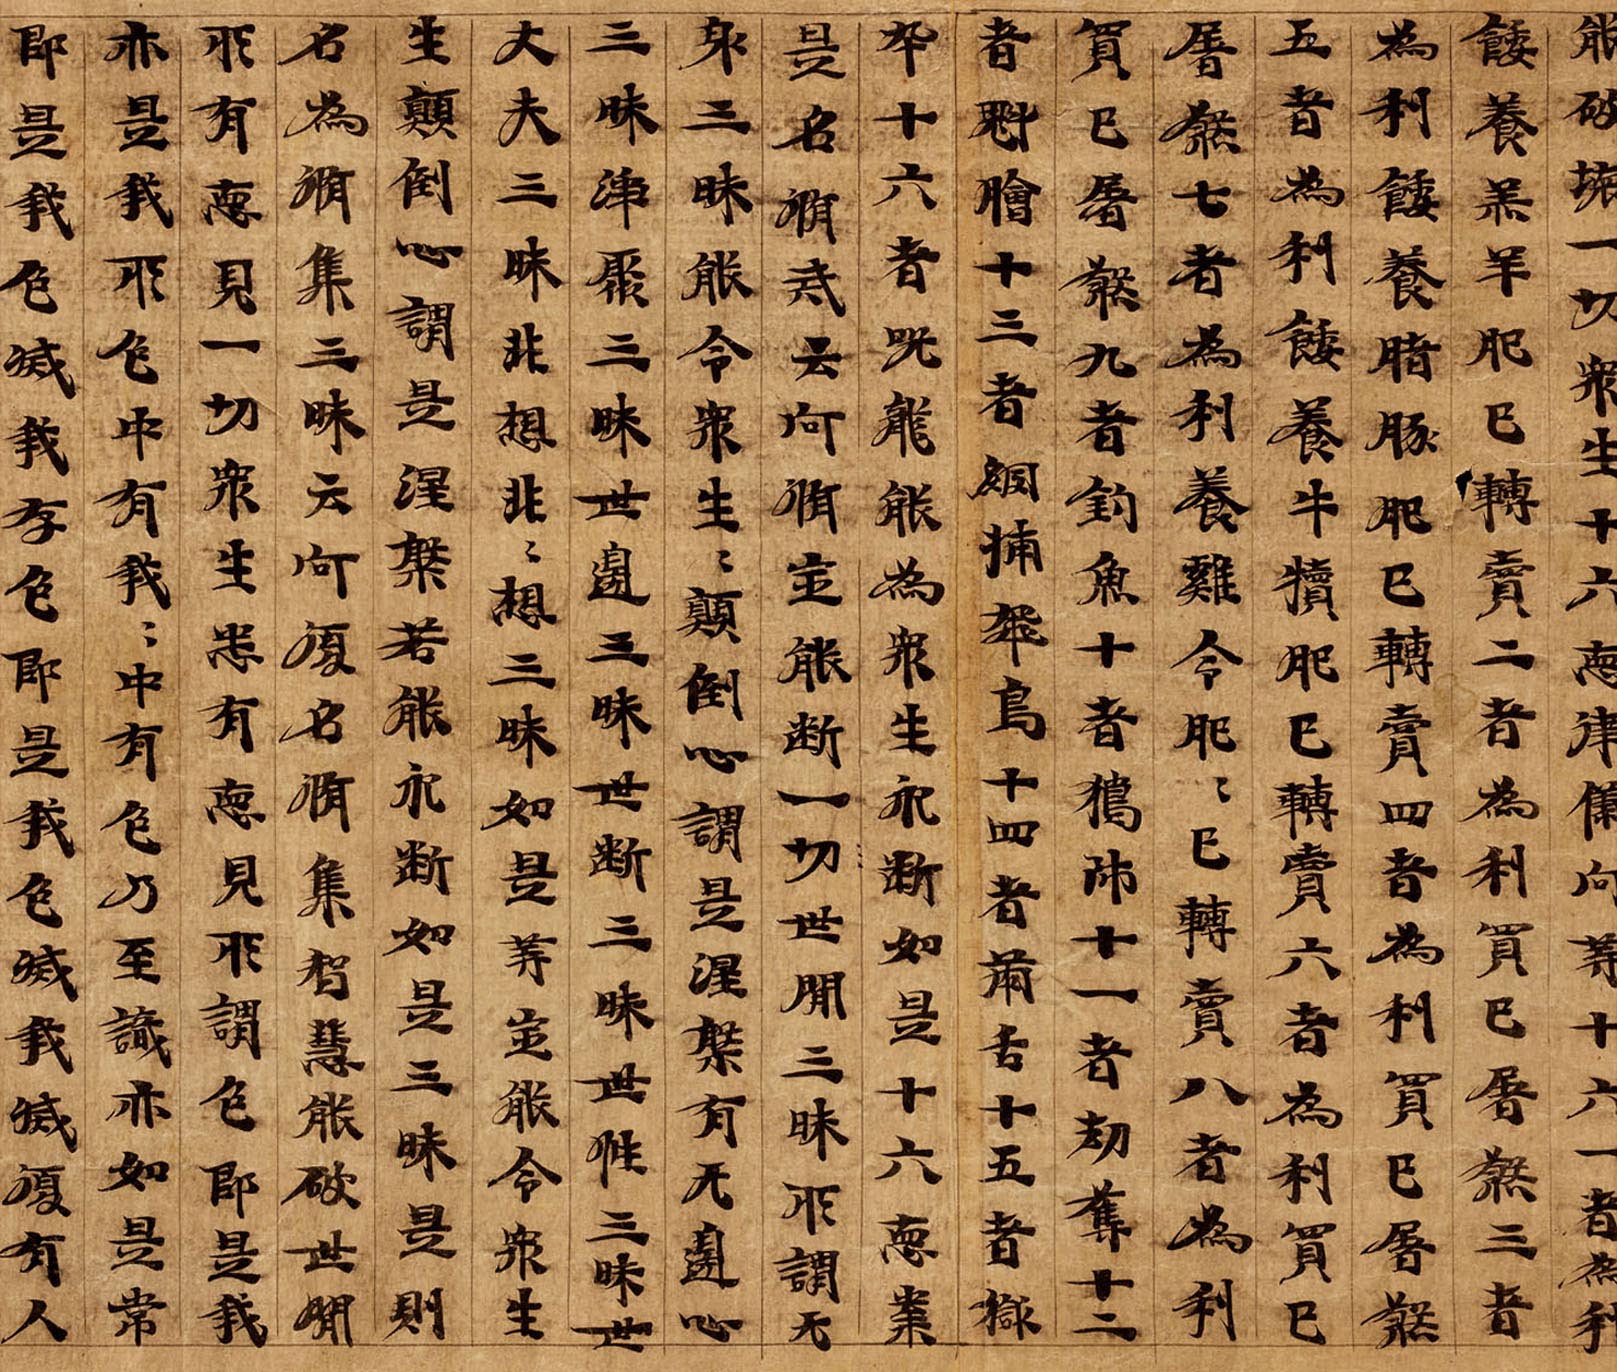 能破壞一切眾生十六惡律儀何等十六一者為利
餧養羔羊肥已轉賣二者為利買已屠煞三者
為利餧養腤豚肥已轉賣四者為利買已屠煞
五者為利餧養牛犢肥已轉賣六者為利買已
屠煞七者為利養雞令肥〻已轉賣八者為利
買已屠煞九者釣魚十者獦師十一者劫奪十二
者魁膾十三者網捕飛鳥十四者兩舌十五者獄
卒十六者咒龍能為眾生永斷如是十六惡業
是名脩戒云何脩定能斷一切世間三昧所謂无
身三昧能令眾生〻顛倒心謂是涅槃有无邊心
三昧淨聚三昧世邊三昧世斷三昧世性三昧世
丈夫三昧非想非〻想三昧如是等定能令眾生
生顛倒心謂是涅槃若能永斷如是三昧是則
名為脩集三昧云何復名脩集智慧能破世間
所有惡見一切眾生悉有惡見所謂色即是我
亦是我所色中有我〻中有色乃至識亦如是常
即是我色滅我存色即是我色滅我滅復有人